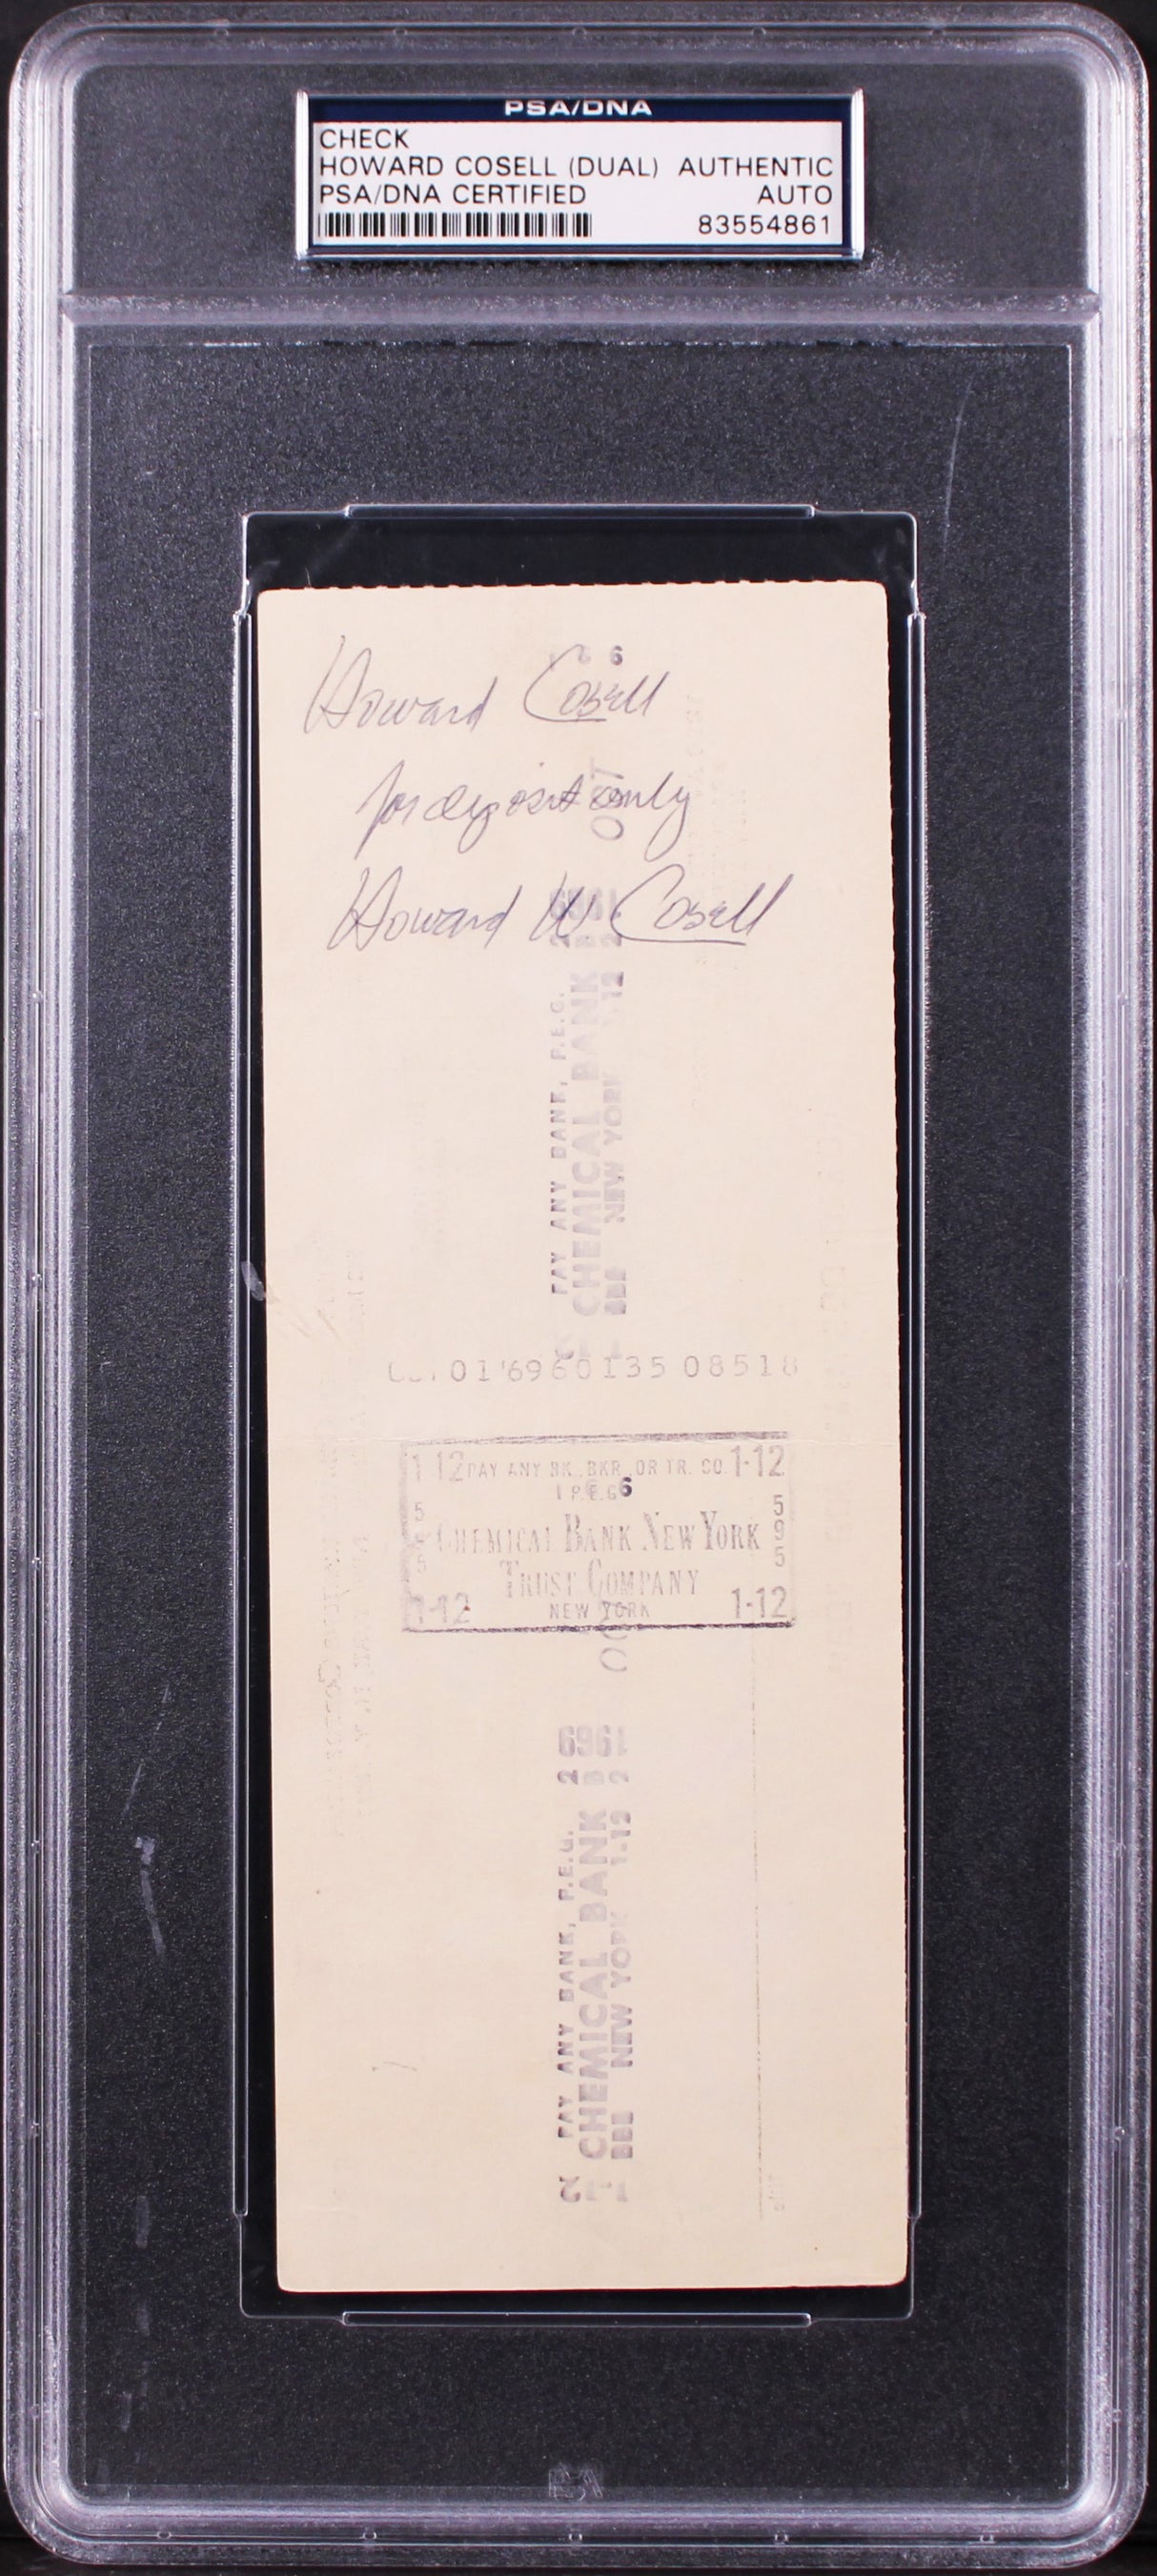 PSA/DNA
CHECK
HOWARD COSELL (DUAL) AUTHENTIC
PSA/DNA CERTIFIED AUTO
83554861
Howard Cosell
for deposit only
Howard W Cosell
PAY ANY BANK, P.E.G.
CHEMICAL BANK
NEW YORK 1-12
01 '69 60135 08518
1-12 PAY ANY BK., BKR., OR TR. CO. 1-12
P.E.G.
CHEMICAL BANK NEW YORK
TRUST COMPANY
1-12 NEW YORK 1-12
595
PAY ANY BANK, P.E.G. 2
CHEMICAL BANK
NEW YORK 1-12 2 1969